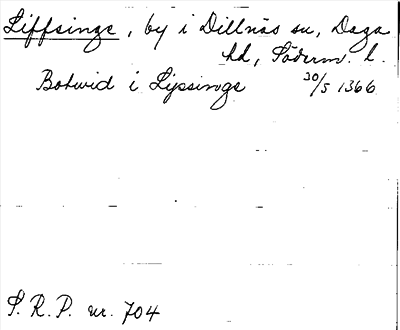 Liffsinge, by i Dillnäs sn, Daga
hd, Söderm. l.
Botwid i Lipsinge 30/5 1366
S. R. P. nr. 704